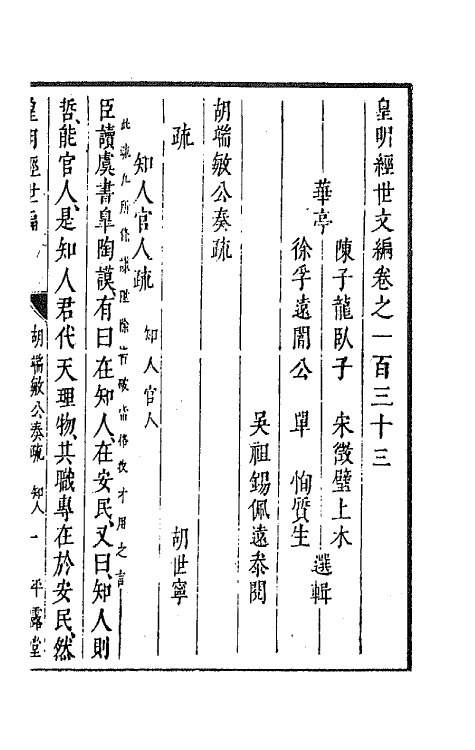 皇明經世文編卷之一百三十三
華亭
陳子龍臥子 宋徵璧上木
徐孚遠闇公 單 恂質生
選輯
吳祖錫佩遠叅閱
胡端敏公奏疏
疏
胡世寧
知人官人疏 知人官人
此疏凡所條議
破
格收才用之言
臣讀虞書臯陶謨、有曰在知人、在安民、又曰、知人則
哲、能官人、是知人君代天理物、其職專在於安民、然
皇明經世編
胡端敏公奏疏 知人 一 平露堂